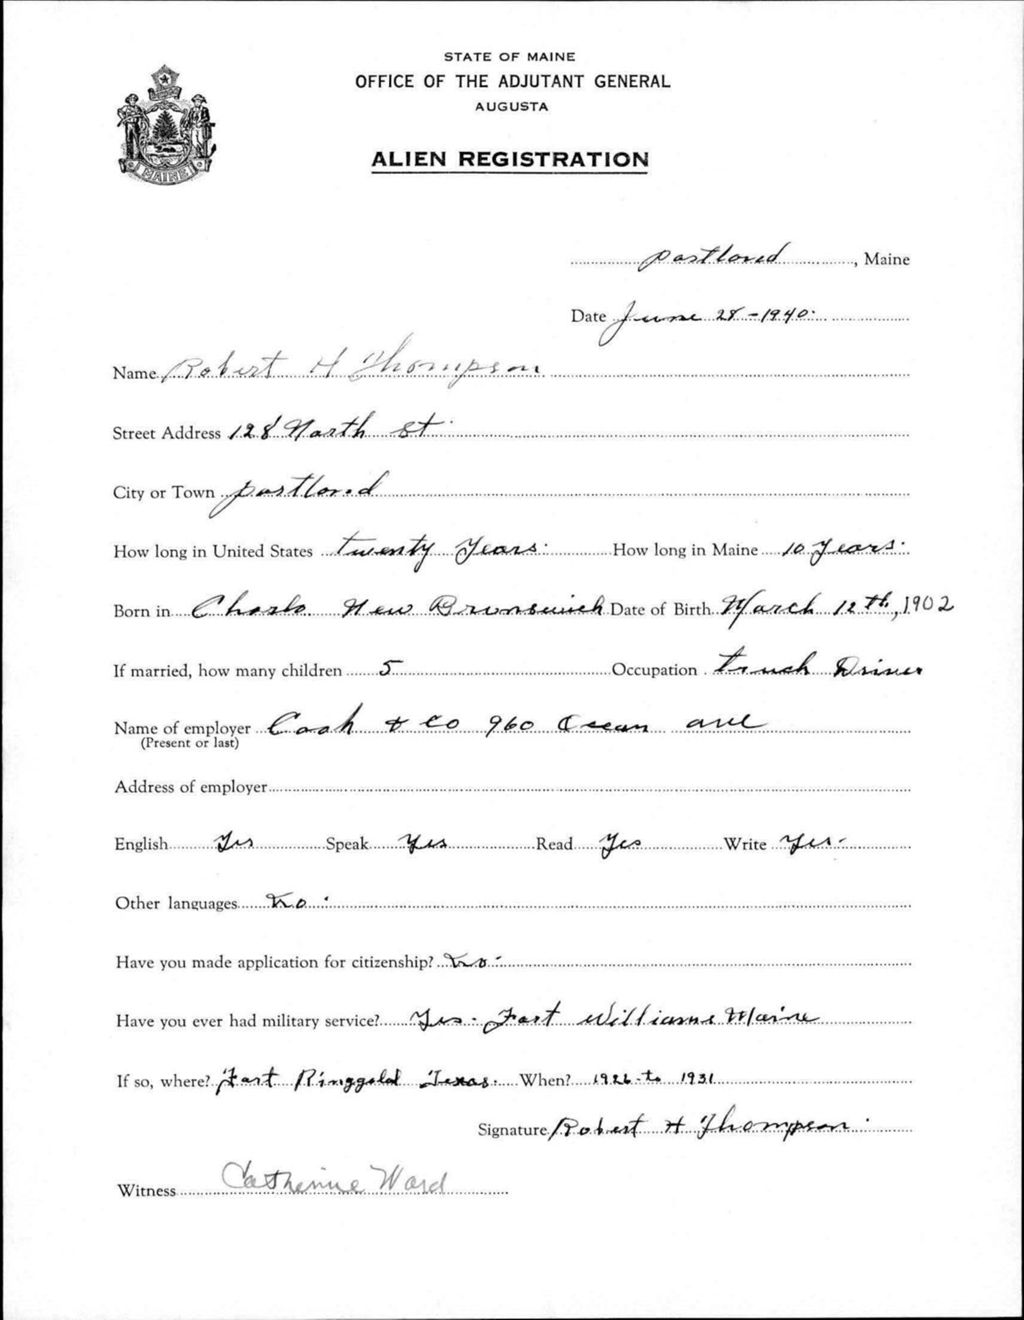 STATE OF MAINE
OFFICE OF THE ADJUTANT GENERAL
AUGUSTA
ALIEN REGISTRATION
MAINE
Portland, Maine
Date June 28-1940.
Name Robert H Thompson
Street Address 128 North St.
City or Town Portland
How long in United States twenty Years. How long in Maine 10 years.
Born in New Brunswick Date of Birth March 12th, 1902
If married, how many children 5 Occupation truck Driver
Name of employer Cook & Co 960 Ocean ave
(Present or last)
Address of employer
English Yes Speak Yes Read Yes Write Yes-
Other languages No.
Have you made application for citizenship? No.
Have you ever had military service? Yes- Fort Williams Maine
If so, where? Fort Ringgold Texas. When? 1926-to 1931
Signature Robert H Thompson.
Witness Catherine Ward